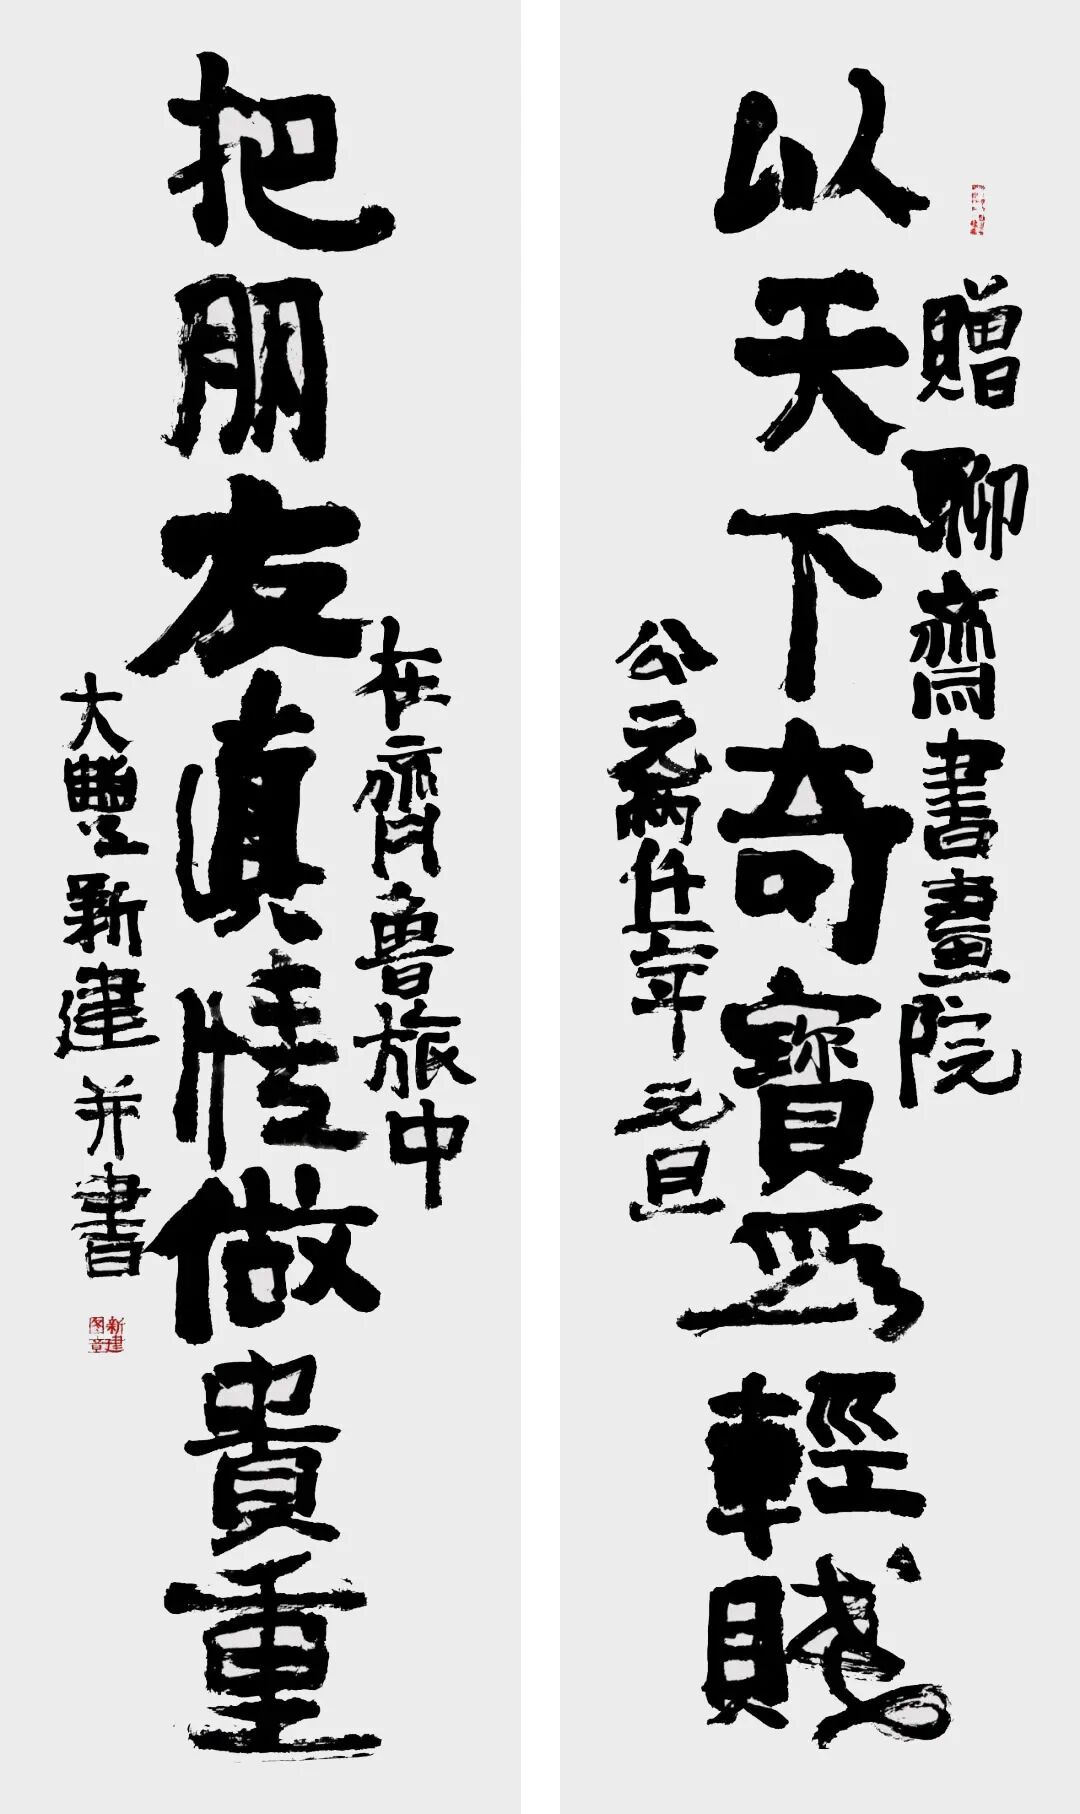 贈聊齋書畫院
以天下奇寶爲輕賤
公元兩仟年元旦
在齊魯旅中
把朋友眞情做貴重
大豐新建并書
新建
图章